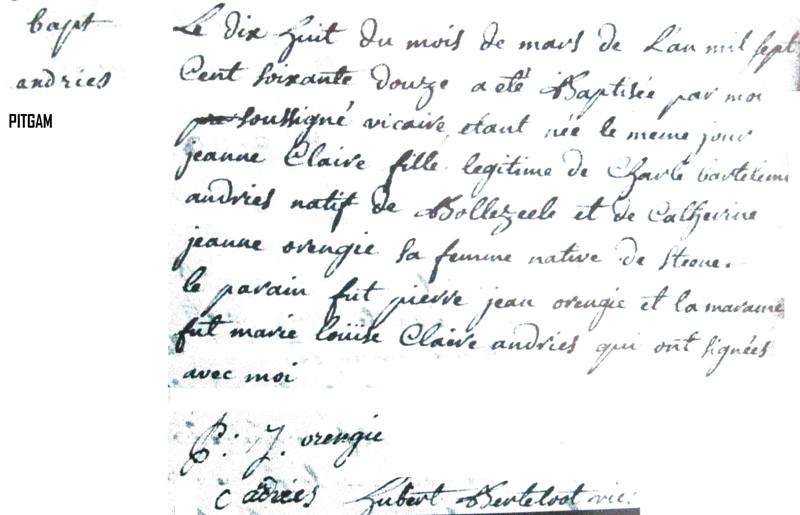 bapt
andries
PITGAM
Le dix huit du mois de mars de L'an mil sept
Cent soixante douze a eté Baptisée par moi
soussigné vicaire, etant née le meme jour
jeanne Claire fille legitime de Charle bartelemi
andries natif de Bollezeele et de Catherine
jeanne orengie sa femme native de Steene.
le parain fut pierre jean orengie et la maraine
fut marie loüise Claire andries qui ont signées
avec moi
P. J. orengie
C adries Hubert Berteloot vic: